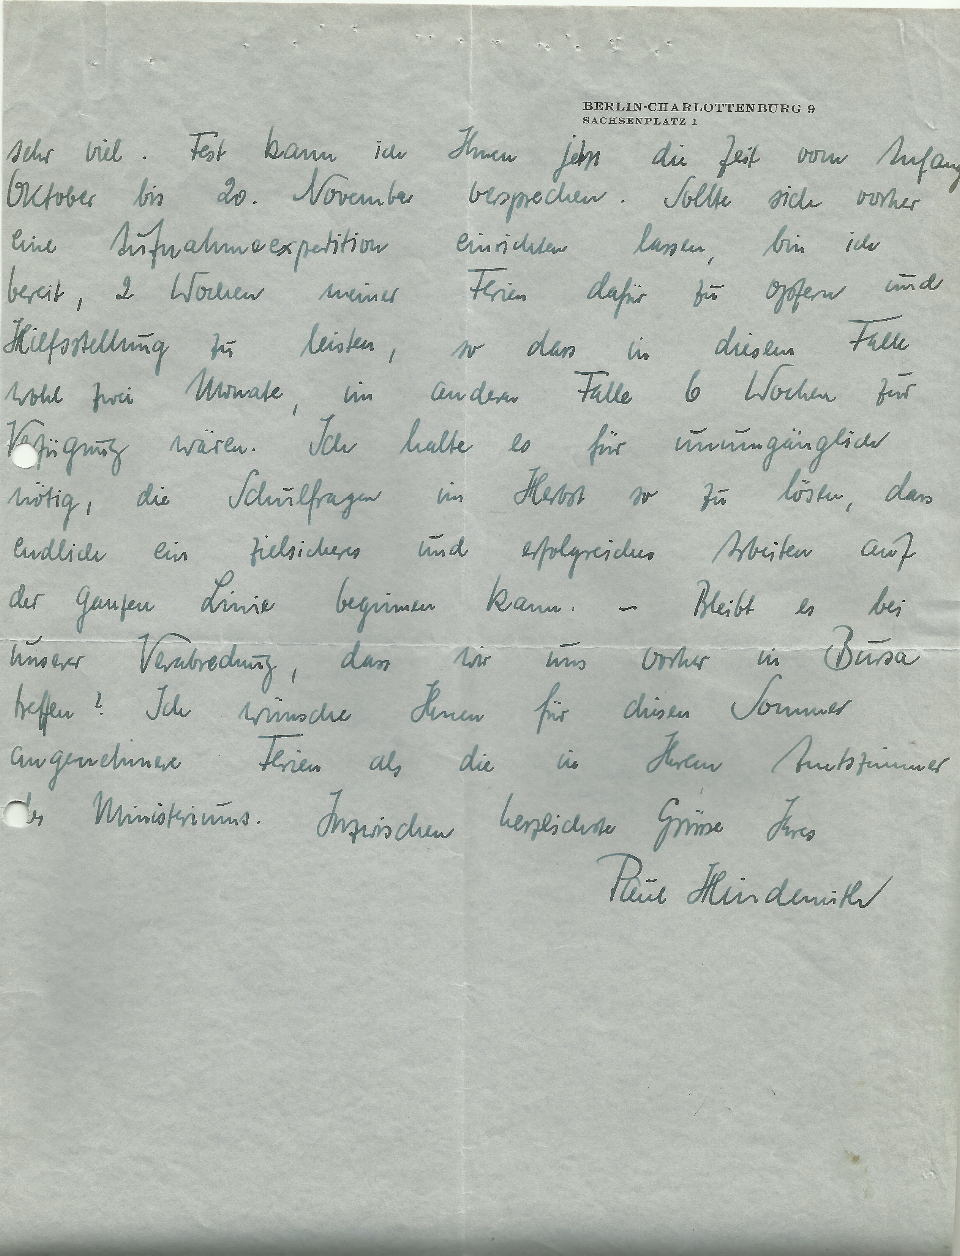 BERLIN-CHARLOTTENBURG 9
SACHSENPLATZ 1
sehr viel. Fest kann ich Ihnen jetzt die Zeit vom Anfang
Oktober bis 20. November versprechen. Sollte sich vorher
eine Aufnahmeexpedition einrichten lassen, bin ich
bereit, 2 Wochen meiner Ferien dafür zu opfern und
Hilfsstellung zu leisten, so dass in diesem Falle
wohl zwei Monate, im andern Falle 6 Wochen zur
Verfügung wären. Ich halte es für unumgänglich
nötig, die Schulfragen im Herbst so zu lösen, dass
endlich ein zielsicheres und erfolgreiches Arbeiten auf
der ganzen Linie beginnen kann. – Bleibt es bei
unserer Verabredung, dass wir uns vorher in Bursa
treffen? Ich wünsche Ihnen für diesen Sommer
angenehmere Ferien als die in Ihrem Amtszimmer
des Ministeriums. Inzwischen herzlichste Grüsse Ihres
Paul Hindemith